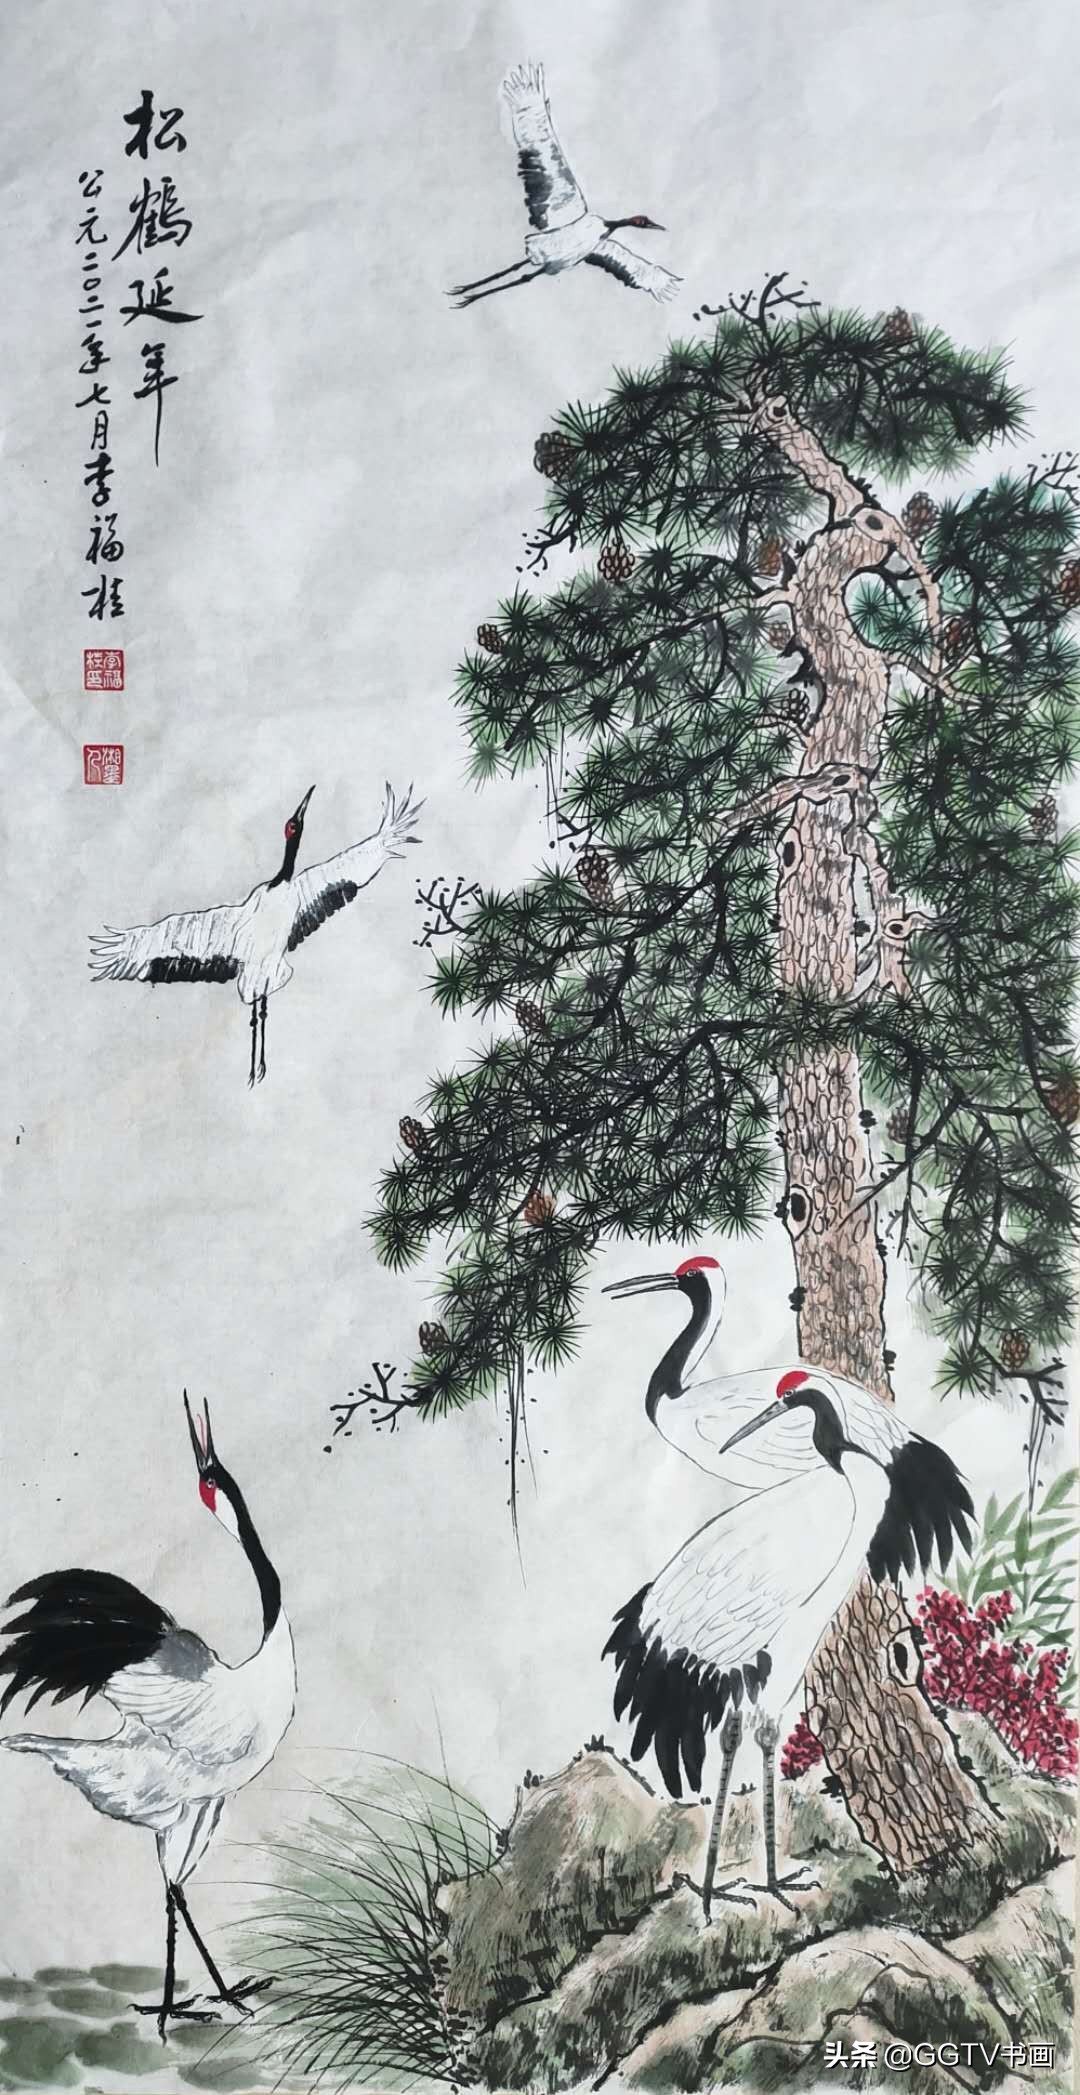 松鹤延年
公元二〇二一年七月李福桂
李福桂印
湘墨人
头条 @GGTV书画